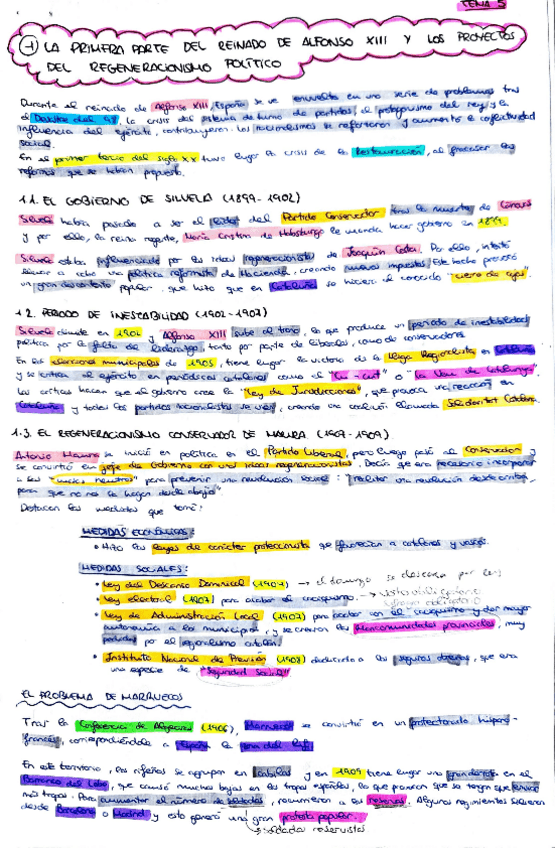 TEMA 5
1 LA PRIMERA PARTE DEL REINADO DE ALFONSO XIII Y LOS PROYECTOS
DEL REGENERACIONISMO POLÍTICO
Durante el reinado de Alfonso XIII, España se ve envuelta en una serie de problemas tras
el Desastre del 98, la crisis del sistema de turno de partidos, el protagonismo del rey y la
influencia del ejército, contribuyeron. Los nacionalismos se reforzaron y aumentó la conflictividad
social.
En el primer tercio del siglo XX tuvo lugar la crisis de la Restauración, al fracasar las
reformas que se habían propuesto.
1.1. EL GOBIERNO DE SILVELA (1899-1902)
Silvela había pasado a ser el líder del Partido Conservador tras la muerte de Cánovas
y por ello, la reina regente, María Cristina de Habsburgo le manda hacer gobierno en 1899.
Silvela estaba influenciado por las ideas regeneracionistas de Joaquín Costa. Por ello, intentó
llevar a cabo una política reformista de Hacienda, creando nuevos impuestos. Este hecho provocó
un gran descontento popular, que hizo que en Cataluña se hiciera el conocido "cierre de cajas".
1.2. PERIODO DE INESTABILIDAD (1902-1907)
Silvela dimite en 190 y Alfonso XIII sube al trono, lo que produce un periodo de inestabilidad
política por la falta de liderazgo, tanto por parte de liberales, como de conservadores.
En las elecciones municipales de 1905, tiene lugar la victoria de la Lliga Regionalista en Cataluña
y se critica al ejército en periódicos catalanes como el "Cu-cut" o "La Veu de Catalunya".
Las críticas hacen que el gobierno cree la "Ley de Jurisdicciones", que provoca una reacción en
Cataluña y todos los partidos nacionalistas se unen, creando una coalición llamada Solidaritat Catalana.
1.3. EL REGENERACIONISMO CONSERVADOR DE MAURA (1907-1909)
Antonio Maura se inició en política en el Partido Liberal, pero luego pasó al Conservador y
se convirtió en jefe de Gobierno con unas ideas regeneracionistas. Decía que era necesario incorporar
a las "masas neutras" para prevenir una revolución social: "realizar una revolución desde arriba,
para que no nos la hagan desde abajo"
Destacan las medidas que tomó:
MEDIDAS ECONÓMICAS:
• Hizo las leyes de carácter proteccionista que favorecían a catalanes y vascos.
MEDIDAS SOCIALES:
• Ley del Descanso Dominical (1904) → el domingo se descansa por ley
• Ley electoral (1907) para acabar el caciquismo. → voto obligatorio
• Ley de Administración Local (1907) para acabar con el caciquismo y dar mayor
autonomía a los municipios, y se crearon las Mancomunidades provinciales, muy
por el regionalismo catalán.
• Instituto Nacional de Previsión (1908) dedicado a los seguros obreros, que era
una especie de "Seguridad Social"
EL PROBLEMA DE MARRUECOS
Tras la Conferencia de Algeciras (1906), Marruecos se convirtió en un protectorado hispano-
francés, correspondiéndole a España la zona del Rif.
En este territorio, los rifeños se agrupan en cabilas y en 1909 tiene lugar una gran derrota en el
Barranco del Lobo, que causó muchas bajas en las tropas españolas, lo que provoca que se tengan que enviar
más tropas. Para aumentar el número de soldados, recurrieron a los reservas. Algunos regimientos salieron
desde Barcelona o Madrid y esto generó una gran protesta popular.
→ soldados reservistas